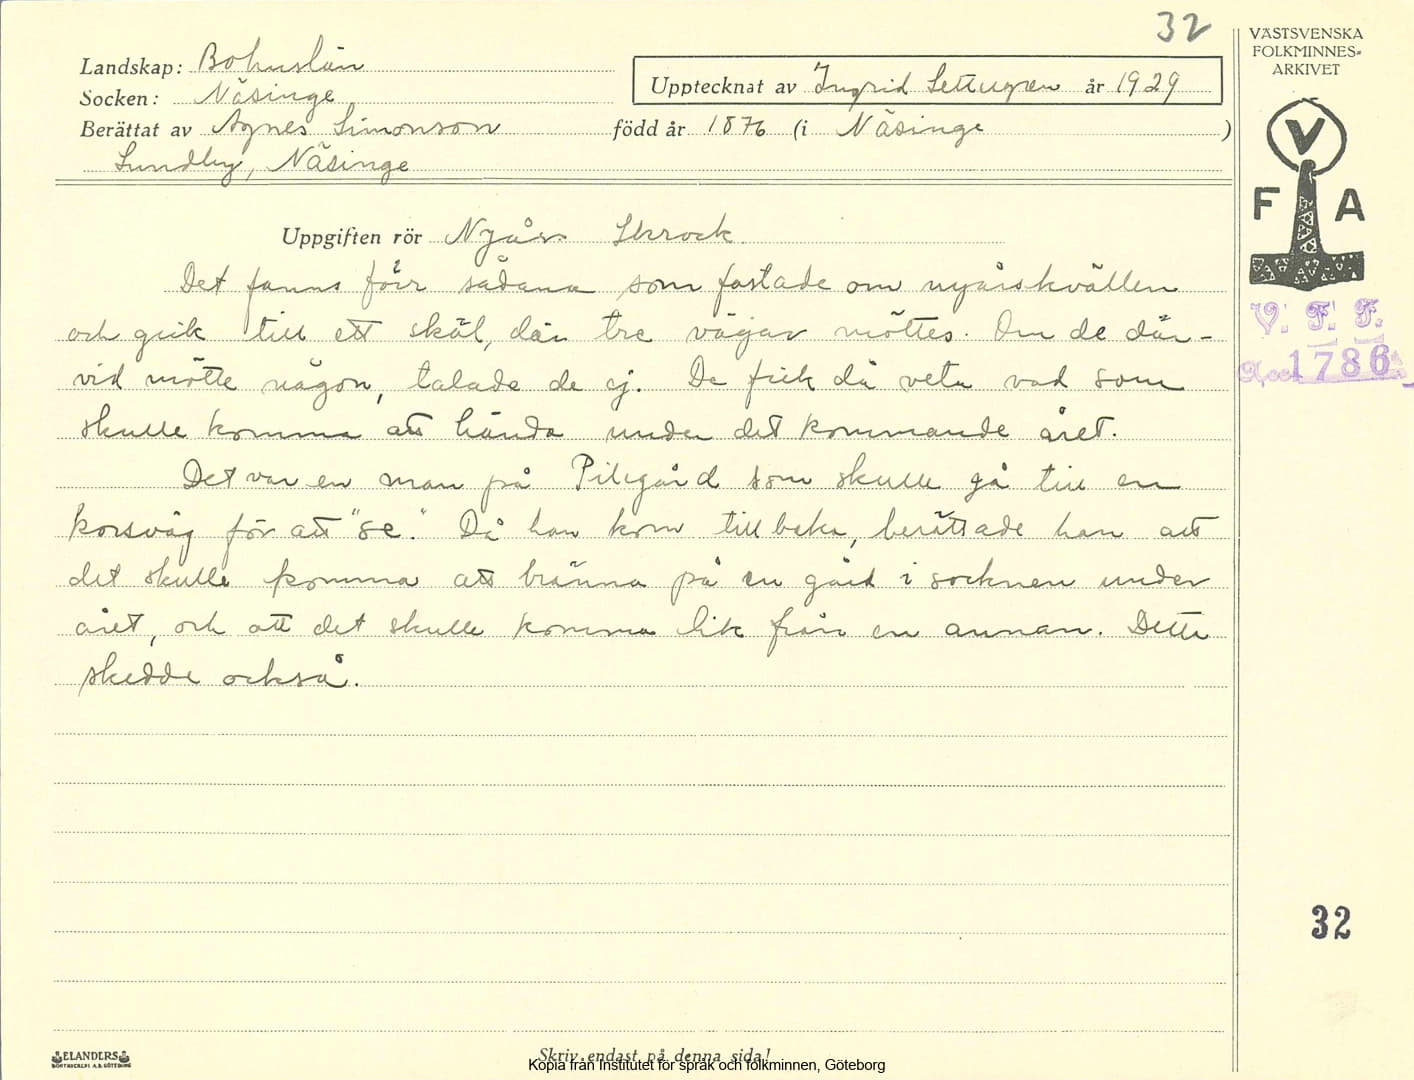 32
Landskap: Bohuslän
Socken: Näsinge
Upptecknat av Ingrid år 1929
Berättat av Agnes Simonson född år 1876 (i Näsinge )
Lundby, Näsinge
Uppgiften rör Nyår Skrock
Det fanns förr sådana som fastade om nyårskvällen
och gick till ett skäl, där tre vägar möttes. Om de där-
vid mötte någon, talade de ej. De fick då veta vad som
skulle komma att hända under det kommande året.
Det var en man på Pilegård som skulle gå till en
korsväg för att "se". Då han kom tillbaka, berättade han att
det skulle komma att bränna på en gård i socknen under
året, och att det skulle komma lik från en annan. Detta
skedde också.
VÄSTSVENSKA
FOLKMINNES-
ARKIVET
V
F A
V. F. F.
Acc 1786
32
ELANDERS
BOKTRYCKERI A.B. GÖTEBORG
Skriv endast på denna sida!
Kopia från Institutet för språk och folkminnen, Göteborg